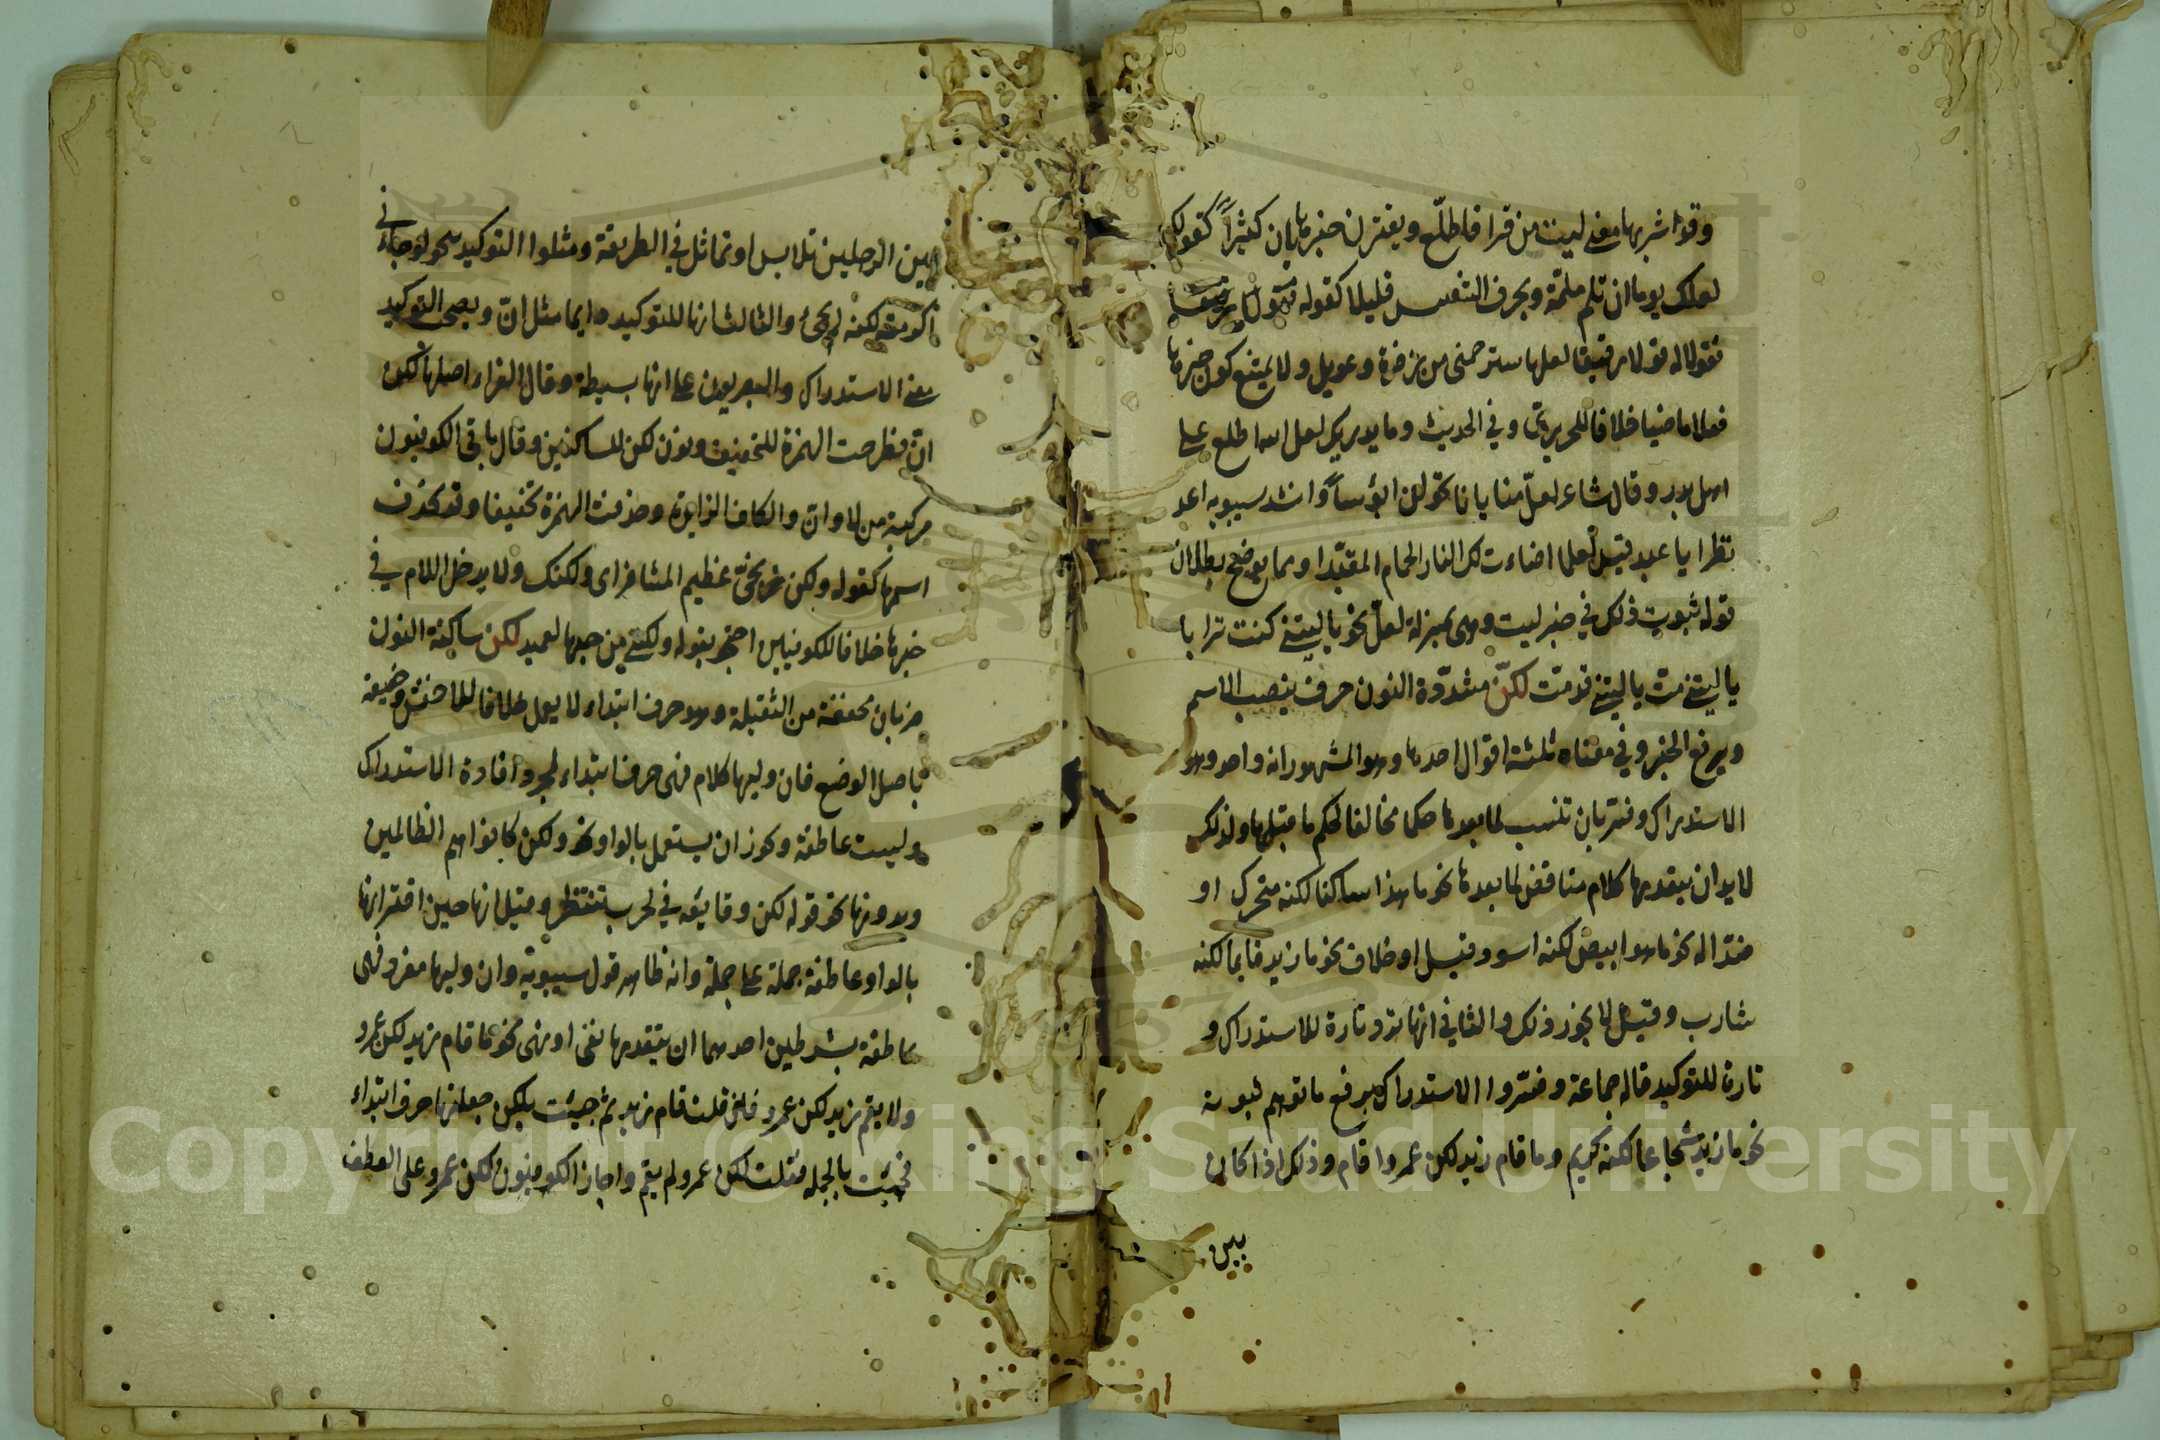 وقوا شربها معنى ليت من قرا فاطلع ويقترن خبرها بان كثيراً كقوله
لعلك يوما ان تلم ملمة وبحرف التنفيس قليلا كقوله
فقولا له قولا رقيقا لعلها سترحمنى من زفرة وعويل ولا يمتنع كون خبرها
فعلا ماضيا خلافا للحريرى وفي الحديث وما يدريك لعل الله اطلع على
اهل بدر وقال الشاعر لعلّ منايانا تحولن ابؤسا وانشد سيبويه اعد
نظرا يا عبد قيس لعلما اضاءت لك النار الحمار المقيّدا ومما يوضح بطلان
قوله ثبوت ذلك في خبر ليت وهى بمنزلة لعلّ نحو يا ليتنى كنت ترابا
يا ليتنى مت يا ليتنى قدمت لكنّ مشدّدة النون حرف ينصب الاسم
ويرفع الخبر وفي معناه ثلثة اقوال احدها وهو المشهور انه واحد وهو
الاستدراك وفسر بان تنسب لما بعدها حكما مخالفا لحكم ما قبلها ولذلك
لا بد ان يتقدمها كلام مناقض لما بعدها نحو ما هذا ساكنا لكنه متحرك او
ضدّ له نحو ما هو ابيض لكنه اسود وقيل او خلاف نحو ما زيد قايما لكنه
شارب وقيل لا يجوز ذلك والثاني انها ترد تارة للاستدراك و
تارة للتوكيد قاله جماعة وفسّروا الاستدراك برفع ما توهم ثبوته
نحو ما زيد شجاعا لكنه كريم وما قام زيد لكن عمروا قام وذلك اذا كان
بين
بين الرجلين تلابس او تماثل في الطريقة ومثلوا التوكيد بنحو لو جاءنى
اكرمته لكنه لم يجئ والثالث انها للتوكيد دايما مثل انّ ويصحب التوكيد
معنى الاستدراك والبصريون على انها بسيطة وقال الفراء اصلها لكن
انّ فطرحت الهمزة للتخفيف ونون لكن للساكنين وقال باقى الكوفيون
مركبة من لا وانّ والكاف الزايدة وحذفت الهمزة تخفيفا وقد يحذف
اسمها كقوله ولكن زنجىّ عظيم المشافر اى ولكنك ولا يدخل اللام في
خبرها خلافا للكوفيين احتجوا بقوله ولكننى من حبها لعميد لكن ساكنة النون
ضربان مخففة من الثقيلة وهو حرف ابتداء لا يعمل خلافا للاخفش وخفيفة
باصل الوضع فان وليها كلام فهى حرف ابتداء لمجرد افادة الاستدراك
وليست عاطفة ويجوز ان يستعمل بالواو نحو ولكن كانوا هم الظالمين
وبدونها نحو قوله لكن وقايعه في الحرب تنتظر وقيل انها حين اقترانها
بالواو عاطفة جملة على جملة وانه ظاهر قول سيبويه وان وليها مفرد فهى
عاطفة بشرطين احدهما ان يتقدمها نفى او نهى نحو ما قام زيد لكن عمرو
ولا يقم زيد لكن عمرو فان قلت قام زيد ثم جيئت بلكن جعلتها حرف ابتداء
فجيئت بالجملة فقلت لكن عمرو لم يقم واجاز الكوفيون لكن عمرو على العطف
Copyright © King Saud University